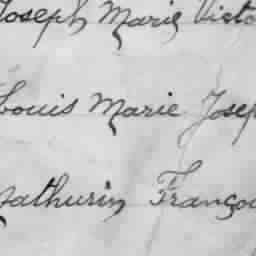 Joseph Marie Victo
Louis Marie Josep
Mathurin Françoi